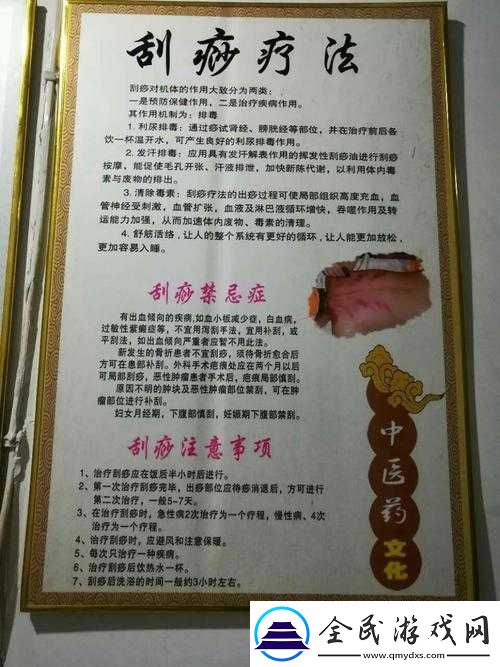 刮痧疗法
刮痧对机体的作用大致分为两类:
一是预防保健作用,二是治疗疾病作用。
其作用机制为: 排毒
1. 利尿排毒: 通过痧试肾经、膀胱经等部位,并在治疗前后各
饮一杯温开水,可产生良好的利尿排毒作用。
2. 发汗排毒: 应用具有发汗解表作用的挥发性刮痧油进行刮痧
按摩,能促使毛孔开张、汗液排泄,加快新陈代谢,以利用体内毒
素与废物的排出。
3. 清除毒素: 刮痧疗法的出痧过程可使局部组织高度充血,血
管神经受刺激,血管扩张,血液及淋巴液循环增快,吞噬作用及转
运能力加强,从而加速体内废物、毒素的清理。
4. 舒筋活络,让人的整个系统有更好的循环,让人能更加放松,
更加容易入睡。
刮痧禁忌症
有出血倾向的疾病,如血小板减少症,白血病,
过敏性紫癜症等,不宜用泻刮手法,宜用补刮,或
平刮法,如出血倾向严重者应暂不用此法。
新发生的骨折患者不宜刮痧,须待骨折愈合后
方可在患部补刮。外科手术疤痕处应在两个月以后
可局部刮痧,恶性肿瘤患者手术后,疤痕局部慎刮。
原因不明的肿块及恶性肿瘤部位禁刮,可在肿
瘤部位进行补刮。
妇女月经期,下腹部慎刮,妊娠期下腹部禁刮。
刮痧注意事项
1、治疗刮痧应在饭后半小时后进行。
2、第一次治疗刮痧完毕,出痧部位应待痧消退后,方可进行
第二次治疗,一般5-7天。
3、在治疗刮痧时,急性病2次治疗为一个疗程,慢性病、4次
治疗为一个疗程。
4、治疗刮痧时,应避风和注意保暖。
5、每次只治疗一种疾病。
6、治疗刮痧后饮热水一杯。
7、刮痧后洗浴的时间一般约3小时左右。
中医药文化
全民游戏网
www.qmydxs.com